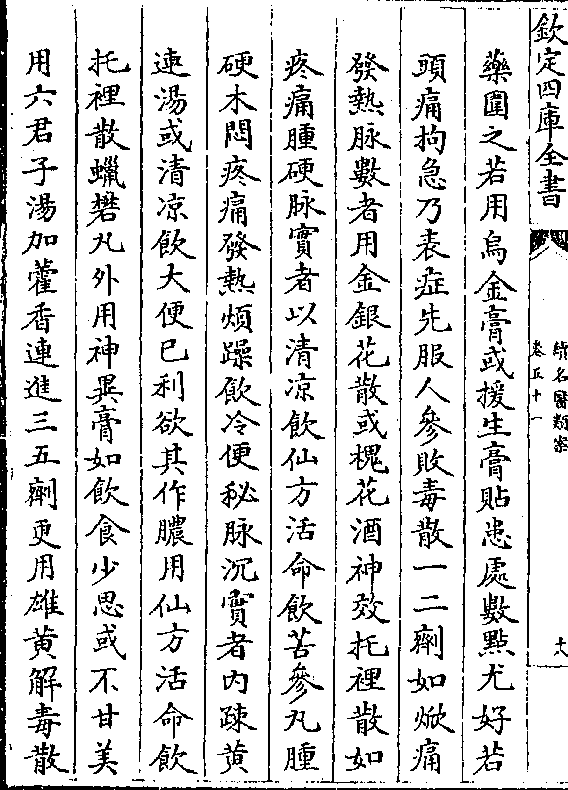 欽定四庫全書
續名醫類案
卷五十一
十八
藥圍之若用烏金膏或援生膏貼患處數點尤好若
頭痛拘急乃表症先服人參敗毒散一二劑如焮痛
發熱脉數者用金銀花散或槐花酒神效托裡散如
疼痛腫硬脉實者以清凉飲仙方活命飲苦參丸腫
硬木悶疼痛發熱煩躁飲冷便秘脉沉實者内疎黄
連湯或清凉飲大便已利欲其作膿用仙方活命飲
托裡散蠟礬丸外用神異膏如飲食少思或不甘美
用六君子湯加藿香連進三五劑更用雄黄解毒散